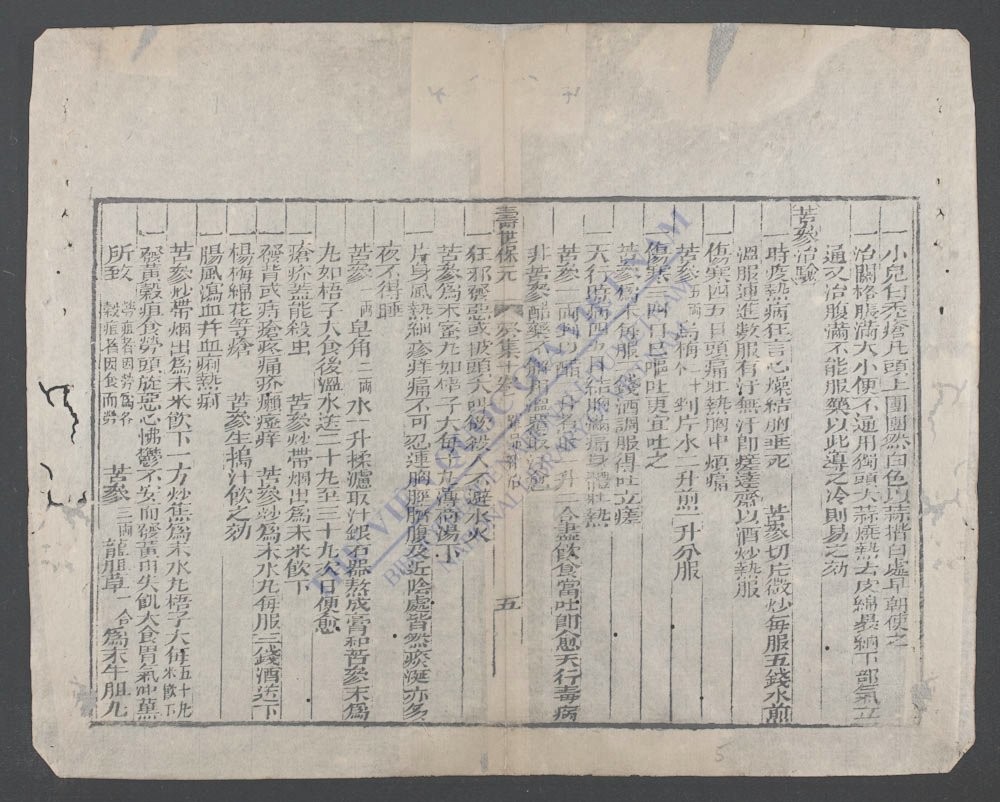 一小兒白禿瘡凡頭上團團然白色以蒜揩白處早朝使之
一治關格脹滿大小便不通用獨頭大蒜燒熟去皮綿裹納下部氣立
通又治腹滿不能服藥以此導之冷則易之効
苦參治驗
一時疫熱病狂言心燥結胸垂死 苦參切片微炒每服五錢水煎
溫服連進數服有汗無汗即瘥 以酒炒熱服
一傷寒四五日頭痛壯熱胸中煩痛
苦參五兩 水二升煎一升分服
傷寒三四日已嘔吐更宜吐之
苦參為末每服二錢酒調服得吐立瘥
一天行時病四五日結胸滿痛身體壯熱
苦參一兩剉以醋 升煮取 升二合盡飲食當吐即愈天行毒病
非苦參醋藥不解用溫覆取汗愈
壽世保元 癸集十卷 五
一狂邪發惡或披頭大叫欲殺人不避水火
苦參為末蜜丸如梧子大每 丸薄荷湯下
一片身風熱細疹痒痛不可忍連胸脛臍腹及近陰處皆然痰涎亦多
夜不得睡
苦參一兩皂角二兩水一升揉濾取汁銀石器熬成膏和苦參末為
丸如梧子大食後溫水送二十九至三十九次日便愈
一瘡疥蓋能殺虫 苦參炒帶烟出為末米飲下
一發背或 瘡疼痛疥癩瘙痒 苦參炒為末水丸每服三錢酒送下
一楊梅綿花等瘡 苦參生搗汁飲之効
一腸風瀉血并血痢熱痢
苦參炒帶烟出為末米飲下一方炒焦為末水丸梧子大每五十丸米飲下
一發黃穀疸食勞頭旋惡心怫鬱不安而發黃由失飢大食胃氣冲薰
所致 勞疸者因勞為名穀疸者因食而勞 苦參三兩龍胆草一合為末牛胆丸
THE VIETNAMESE NOM PRESERVATION FOUNDATION
5